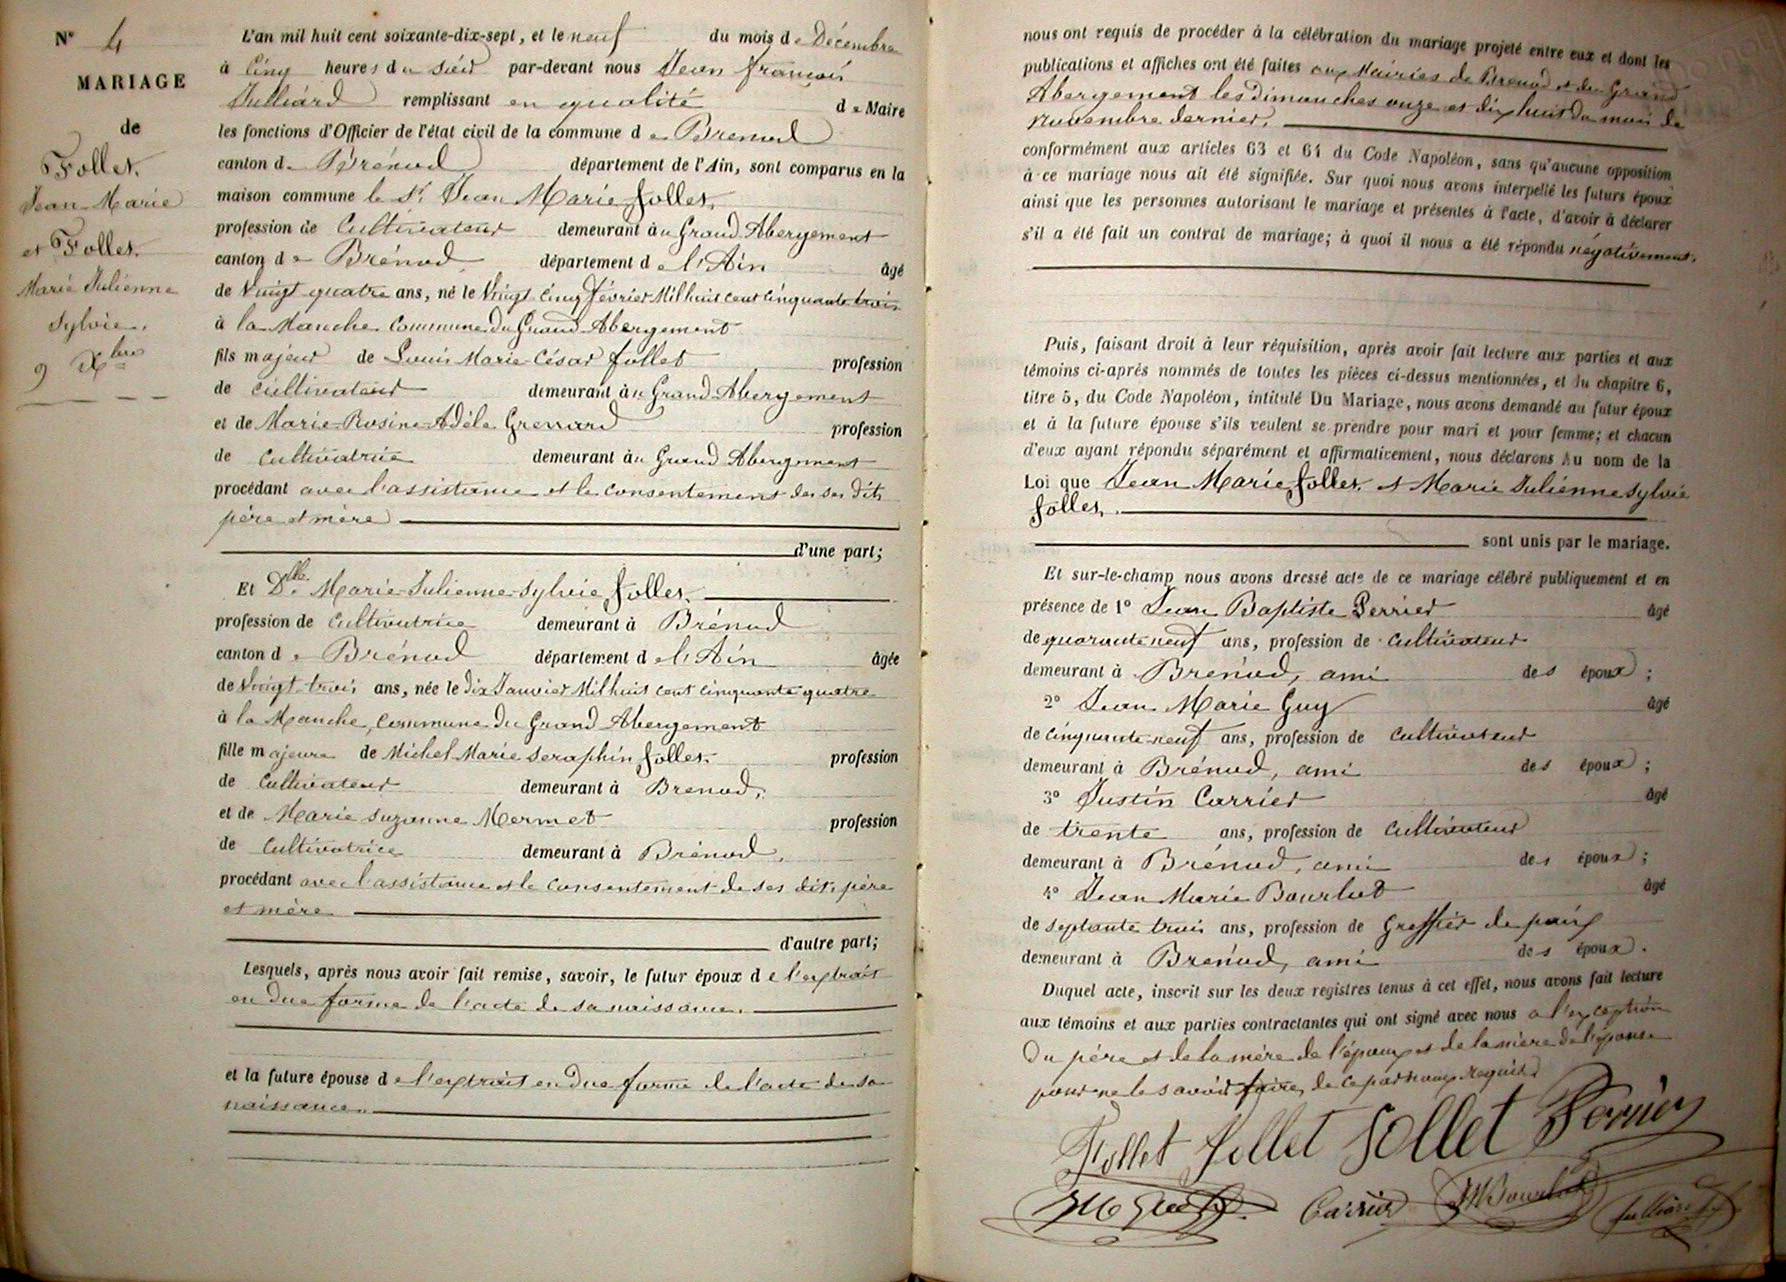 N° 4
MARIAGE
de
Follet.
Jean Marie
et Follet.
Marie Julienne
Sylvie.
9 Xbre
L'an mil huit cent soixante-dix-sept, et le neuf du mois de Décembre
à Cinq heures du Soir par-devant nous Jean françois
Julliard remplissant en qualité de Maire
les fonctions d'Officier de l'état civil de la commune de Brenod
canton de Brénod département de l'Ain, sont comparus en la
maison commune le Sr. Jean Marie follet,
profession de Cultivateur demeurant au Grand Abergement
canton de Brénod département de l'Ain âgé
de Vingt quatre ans, né le Vingt cinq février Mil huit cent cinquante trois
à la Manche Commune du Grand Abergement
fils majeur de Louis Marie César follet profession
de cultivateur demeurant au Grand Abergement
et de Marie Rosine Adèle Grenard profession
de cultivatrice demeurant au Grand Abergement
procédant avec l'assistance et le consentement de ses dits
père et mère
d'une part;
Et Dlle. Marie Julienne Sylvie follet,
profession de cultivatrice demeurant à Brénod
canton de Brénod département de l'Ain âgée
de Vingt trois ans, née le dix Janvier Mil huit cent cinquante quatre
à la Manche, commune du Grand Abergement
fille majeure de Michel Marie Seraphin follet profession
de cultivateur demeurant à Brenod,
et de Marie Suzanne Mermet profession
de cultivatrice demeurant à Brénod,
procédant avec l'assistance et le consentement de ses dits père
et mère
d'autre part;
Lesquels, après nous avoir fait remise, savoir, le futur époux de l'extrait
en due forme de l'acte de sa naissance.
et la future épouse de l'extrait en due forme de l'acte de sa
naissance.
nous ont requis de procéder à la célébration du mariage projeté entre eux et dont les
publications et affiches ont été faites aux Mairies de Brenod et du Grand
Abergement les dimanches onze et dix huit du mois de
novembre dernier,
conformément aux articles 63 et 64 du Code Napoléon, sans qu'aucune opposition
à ce mariage nous ait été signifiée. Sur quoi nous avons interpellé les futurs époux
ainsi que les personnes autorisant le mariage et présentes à l'acte, d'avoir à déclarer
s'il a été fait un contrat de mariage; à quoi il nous a été répondu négativement.
Puis, faisant droit à leur réquisition, après avoir fait lecture aux parties et aux
témoins ci-après nommés de toutes les pièces ci-dessus mentionnées, et du chapitre 6,
titre 5, du Code Napoléon, intitulé Du Mariage, nous avons demandé au futur époux
et à la future épouse s'ils veulent se prendre pour mari et pour femme; et chacun
d'eux ayant répondu séparément et affirmativement, nous déclarons Au nom de la
Loi que Jean Marie follet et Marie Julienne Sylvie
follet,
sont unis par le mariage.
Et sur-le-champ nous avons dressé acte de ce mariage célébré publiquement et en
présence de 1° Jean Baptiste Perrier âgé
de quarante neuf ans, profession de cultivateur
demeurant à Brénod, ami des époux;
2° Jean Marie Guy âgé
de cinquante-neuf ans, profession de cultivateur
demeurant à Brénod, ami des époux;
3° Justin Carrier âgé
de trente ans, profession de cultivateur
demeurant à Brénod, ami des époux;
4° Jean Marie Bourbot âgé
de septante trois ans, profession de Greffier de paix
demeurant à Brenod, ami des époux.
Duquel acte, inscrit sur les deux registres tenus à cet effet, nous avons fait lecture
aux témoins et aux parties contractantes qui ont signé avec nous a l'exception
du père et de la mère de l'époux et de la mère de l'épouse
pour ne le savoir faire, de ce par nous requis
Follet follet follet Perrier
JM Guy Carrier JMBourbot Julliard